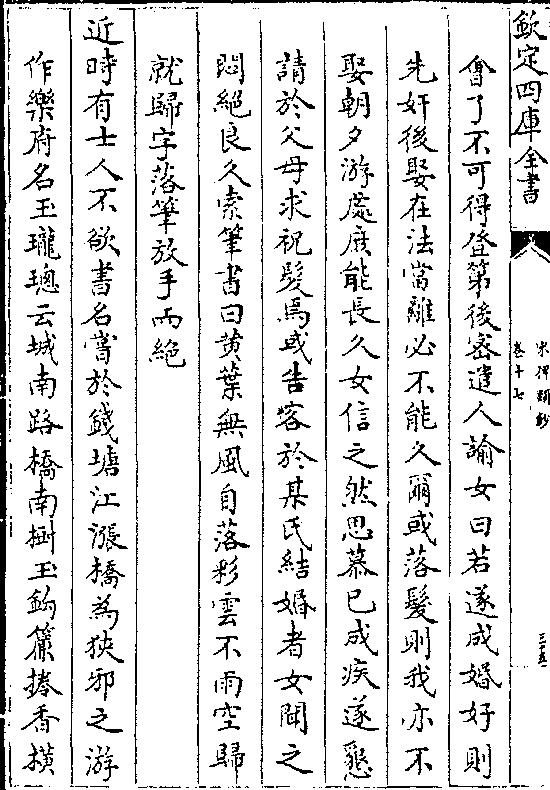 欽定四庫全書
宋稗類鈔
卷十七
三十五
會了不可得登第後密遣人諭女曰若遂成婚好則
先奸後娶在法當離必不能久爾或落髮則我亦不
娶朝夕游處庶能長久女信之然思慕已成疾遂懇
請於父母求祝髮焉或告客於某氏結婚者女聞之
悶絶良久索筆書曰黄葉無風自落彩雲不雨空歸
就歸字落筆放手而絶
近時有士人不欲書名嘗於錢塘江漲橋為狹邪之游
作樂府名玉瓏璁云城南路橋南樹玉鈎簾捲香橫